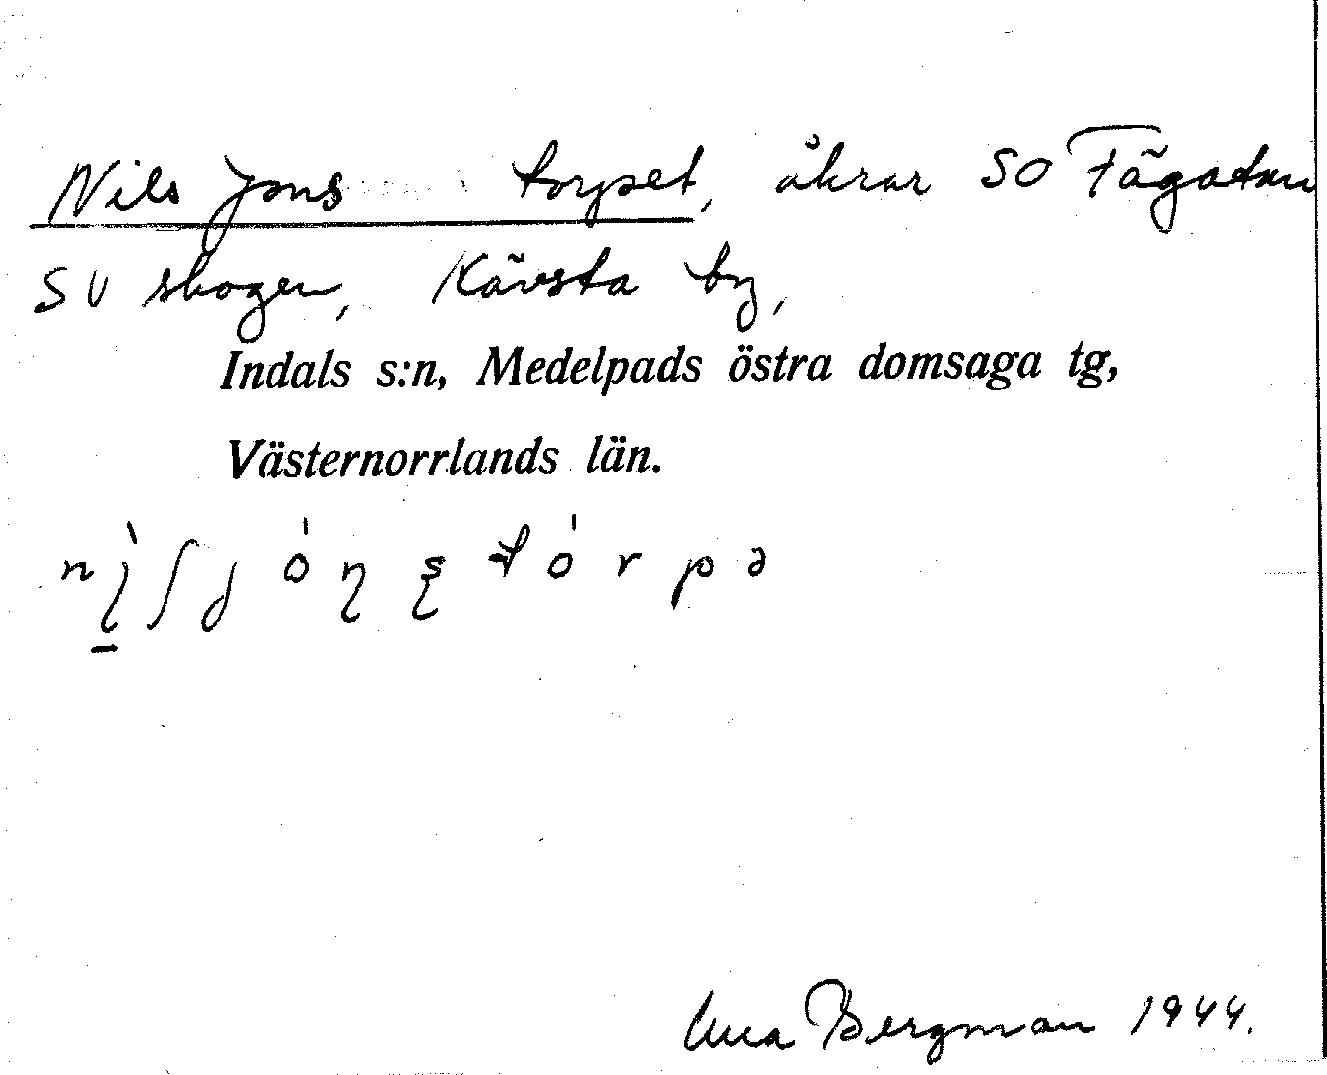 Nils Jons torpet, åkrar SO Fägatan
SV skogen, Kävsta by,
Indals s:n, Medelpads östra domsaga tg,
Västernorrlands län.
Bergman 1944.